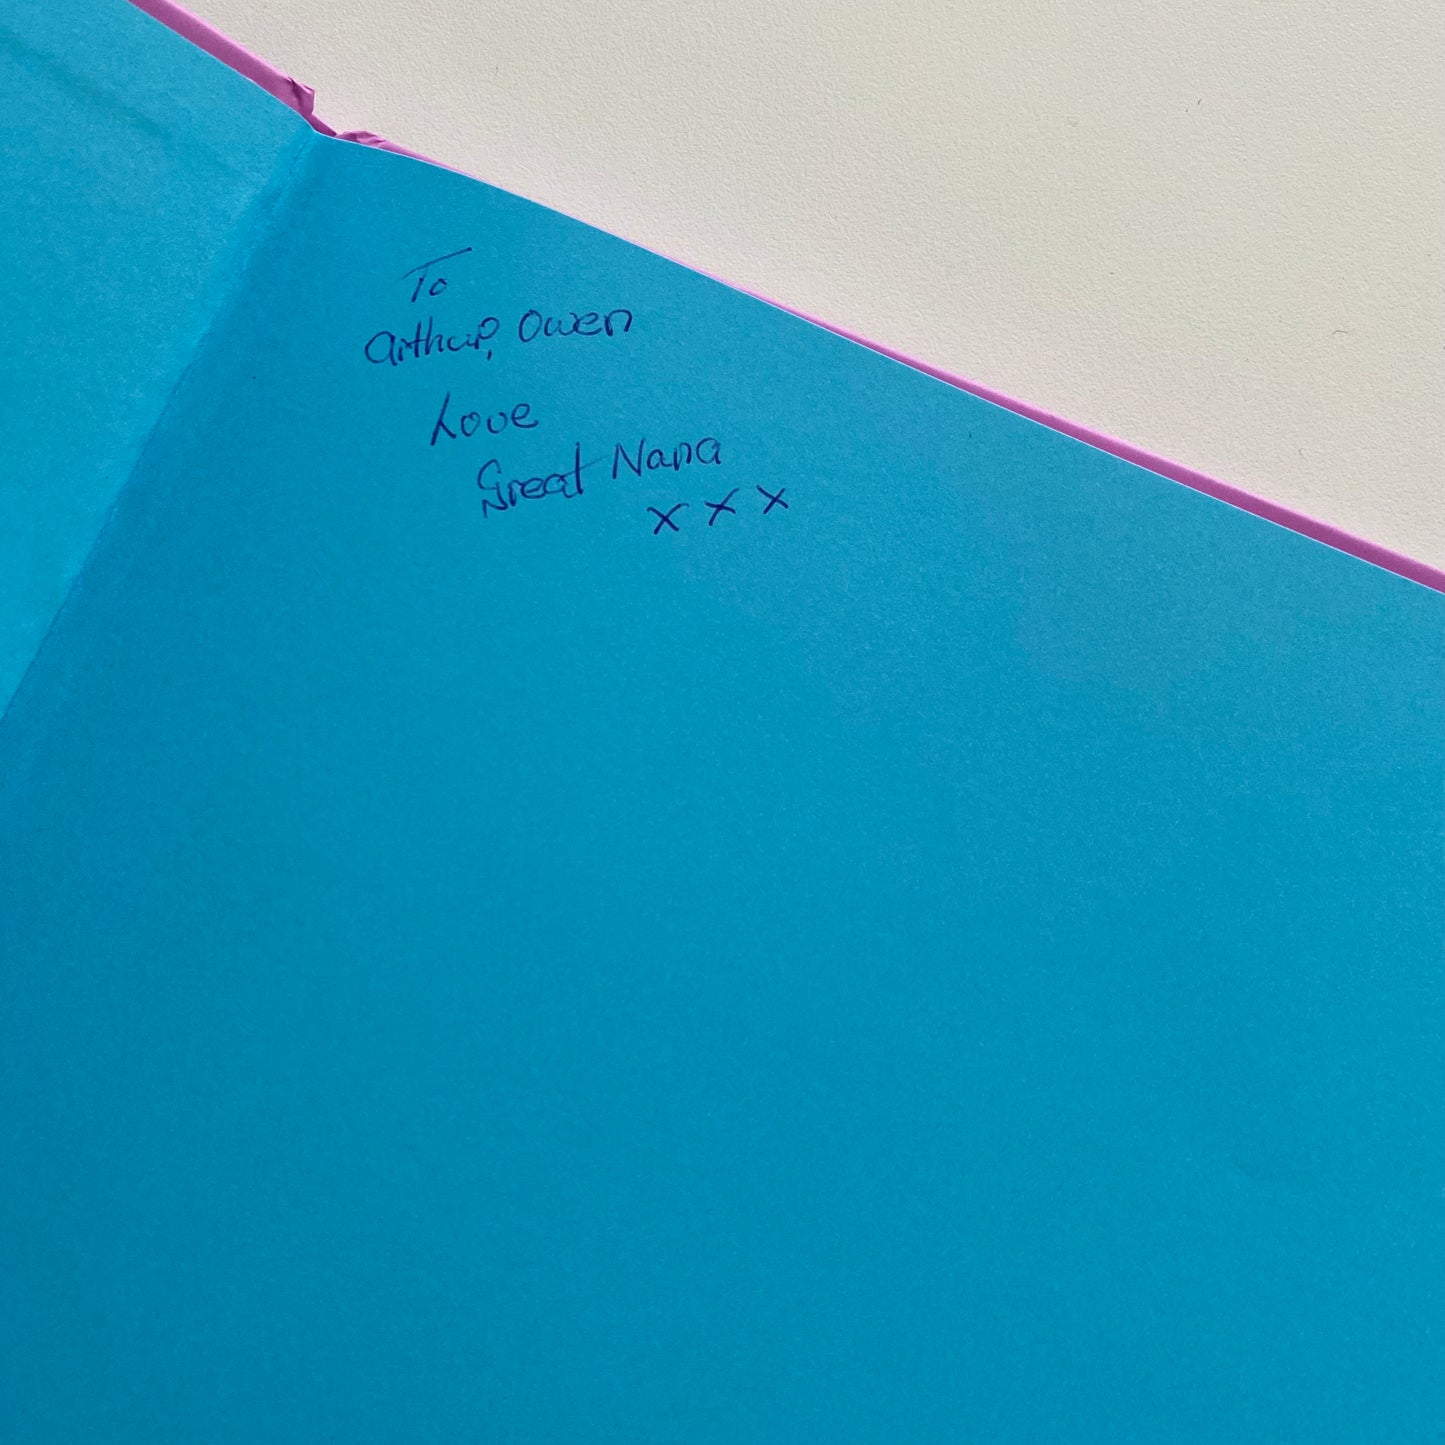 To
Arthur, Owen
Love
Great Nana
x x x